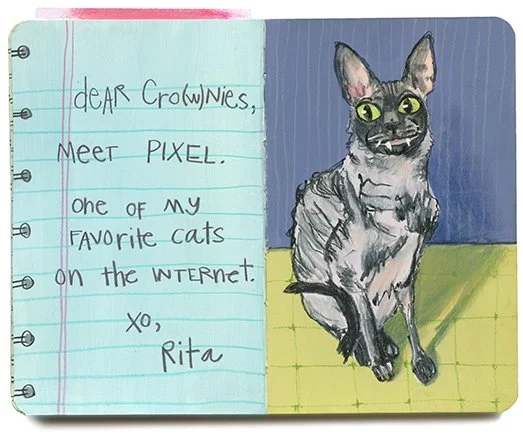 dEAR Cro(w)Nies,
MEET PIXEL.
ONE OF MY
FAVOrite cats
ON the INTERNET.
XO,
Rita